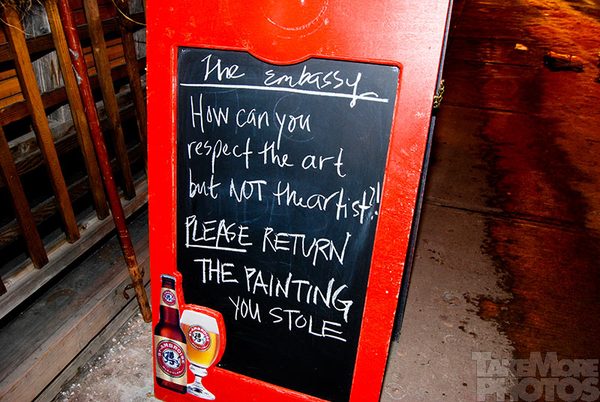 The Embassy
How can you
respect the art
but NOT the artist?!
PLEASE RETURN
THE PAINTING
YOU STOLE
TAKEMORE
PHOTOS